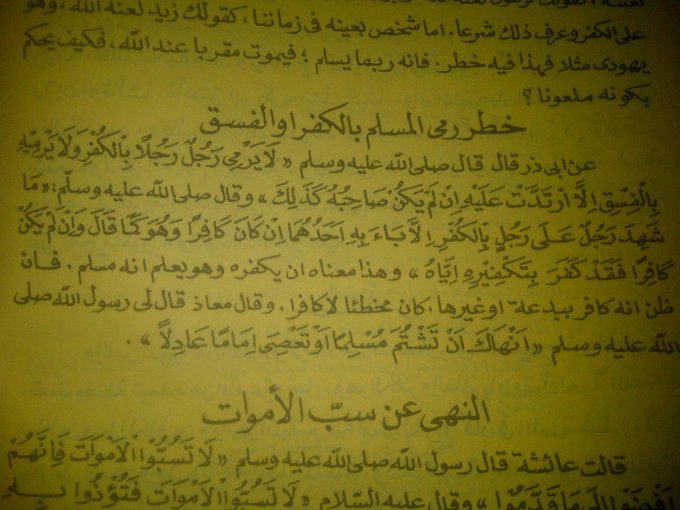 على الكفر وعرف ذلك شرعا. اما شخص بعينه فى زماننا، كقولك زيد لعنه الله، وهو
يهودى مثلا فهذا فيه خطر. فانه ربما يسلم ؛ فيموت مقربا عند الله، فكيف يحكم
بكونه ملعونا ؟
خطر رمى المسلم بالكفر او الفسق
عن ابى ذر قال قال صلى الله عليه وسلم « لَا يَرْمِى رَجُلٌ رَجُلًا بِالْكُفْرِ وَلَا يَرْمِيْهِ
بِالْفِسْقِ اِلَّا ارْتَدَّتْ عَلَيْهِ اِنْ لَمْ يَكُنْ صَاحِبُهُ كَذٰلِكَ » وقال صلى الله عليه وسلم: « مَا
شَهِدَ رَجُلٌ عَلَى رَجُلٍ بِالْكُفْرِ اِلَّا بَاءَ بِهِ اَحَدُهُمَا اِنْ كَانَ كَافِرًا وَهُوَ كَمَا قَالَ وَاِنْ لَمْ يَكُنْ
كَافِرًا فَقَدْ كَفَرَ بِتَكْفِيْرِهِ اِيَّاهُ » وهذا معناه ان يكفره وهو يعلم انه مسلم . فان
ظن انه كافر ببدعة اوغيرها، كان مخطئا لا كافرا. وقال معاذ قال لى رسول الله صلى
الله عليه وسلم « اَنْهَاكَ اَنْ تَشْتُمَ مُسْلِمًا اَوْ تَعْصِىَ اِمَامًا عَادِلًا » .
النهى عن سبّ الأموات
قالت عائشة قال رسول الله صلى الله عليه وسلم « لَا تَسُبُّوا الْاَمْوَاتَ فَاِنَّهُمْ
اَفْضَوْا اِلَى مَا قَدَّمُوْا » وقال عليه السلام « لَا تَسُبُّوا الْاَمْوَاتَ فَتُؤْذُوا بِهِ